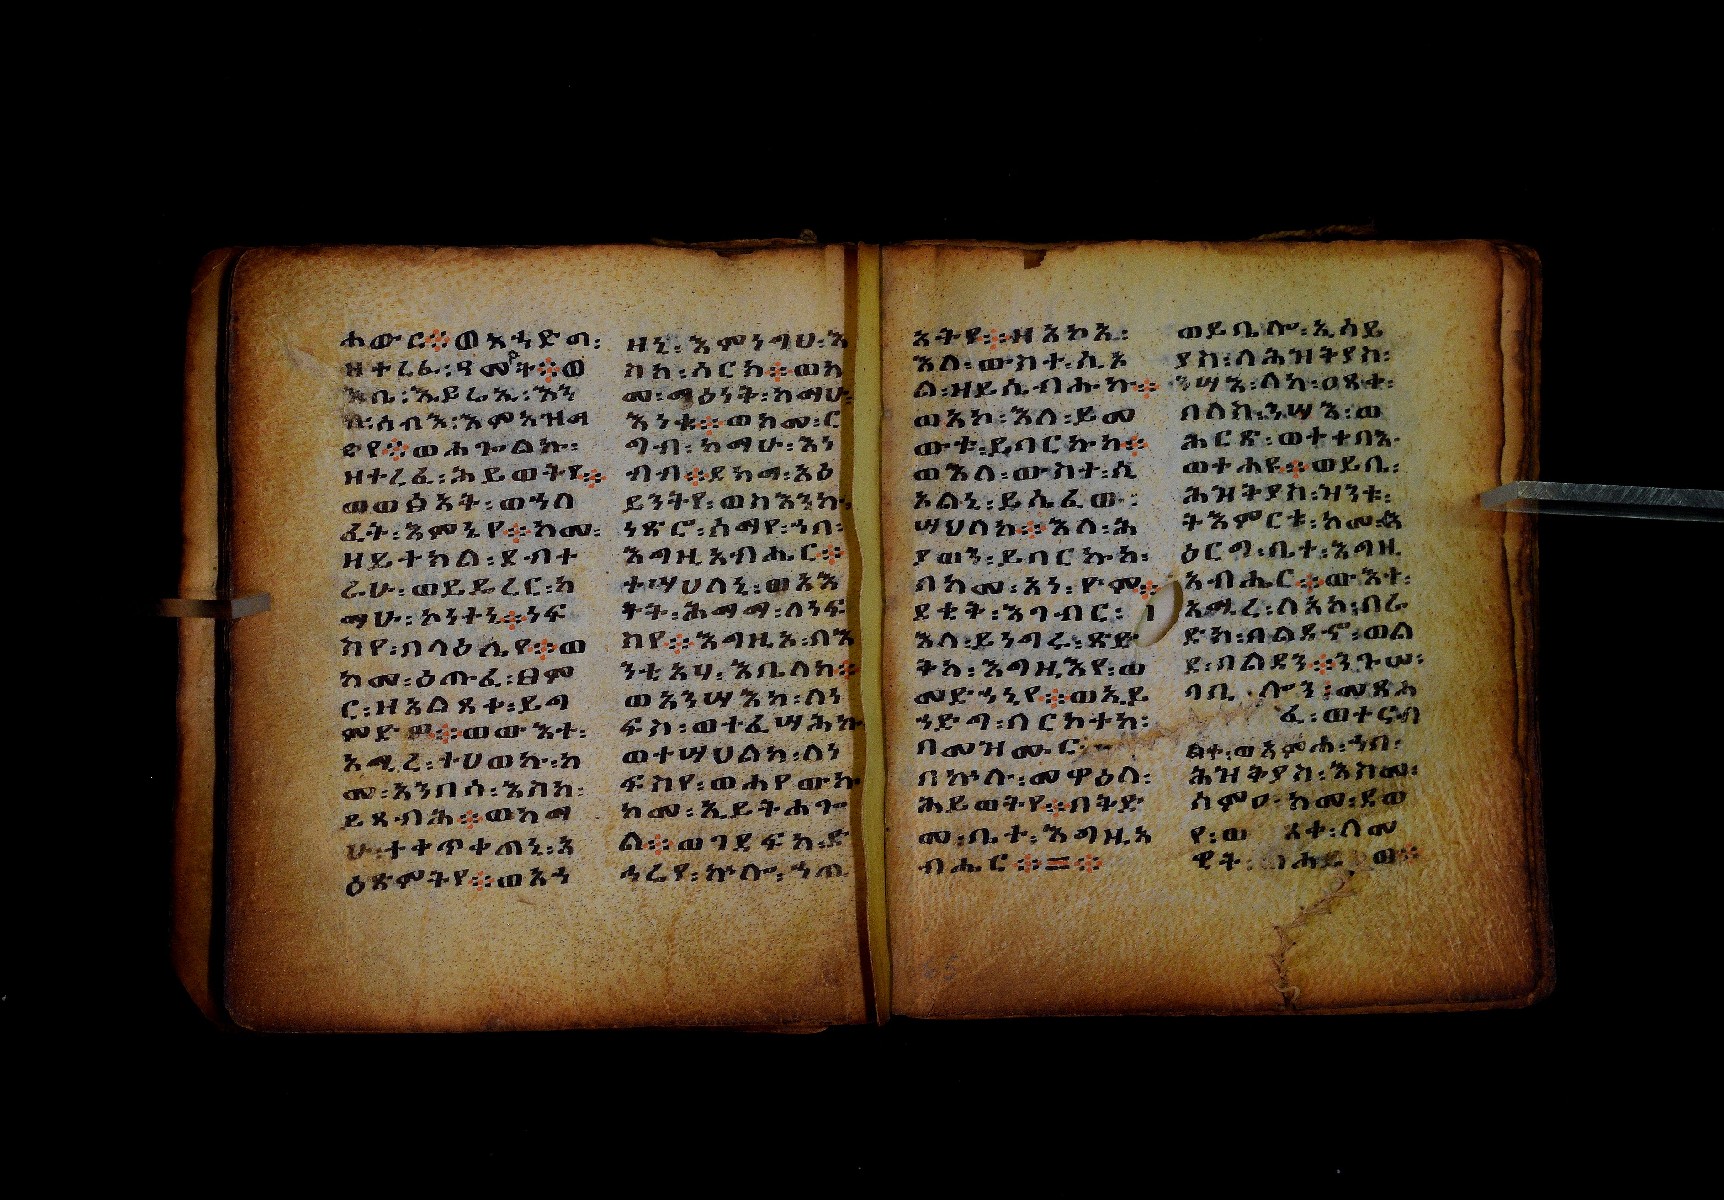 ሖውር፨ወእኀድግ፡
ዘተረፈ፡ዓመት፨ወ
እቤ፡ኢይሬኢ፡እን
ከ፡ሰብእ፡እምአዝማ
ድየ፨ወሐጐልኩ፡
ዘተረፈ፡ሕይወትየ፨
ወወፅአት፡ወኀለ
ፈት፡እምኔየ፨ከመ፡
ዘይተክል፡ደብተ
ራሁ፡ወይዴረር፡ከ
ማሁ፡ኮነተኒ፨ነፍ
ስየ፡በላዕሌየ፨ወ
ከመ፡ዕጡፈ፡ፀምር፡
ዘአልጸቀ፡ይግ
ምድዎ፨ወውእተ፡
አሚረ፡ተሀወኩ፡ከ
መ፡አንበሳ፡እስከ፡
ይጸብሕ፨ወከማ
ሁ፡ተቀጥቀጠኒ፡አ
ዕጽምትየ፨ወእን
ዘኒ፡እምነግህ፡እ
ስከ፡ሰርክ፨ወከ
መ፡ጻዕነት፡ከማሁ፡
እነቁ፨ወከመ፡ር
ግብ፡ከማሁ፡እነ
ብብ፨ደክማ፡አዕ
ይንትየ፡ወከእንክ፡
ነጽሮ፡ሰማየ፡ኀበ፡
እግዚአብሔር፨
ተሣሀለኒ፡ወአእ
ትት፡ሕማማ፡ለነፍ
ስየ፨እግዚአ፡ብእ
ንቲአሃ፡እቤለከ፨
ወአንሣእከ፡ለነ
ፍስ፡ወተፈሣሕኩ
ወተሣሀልከ፡ለነ
ፍስየ፡ወሐየውኩ
ከመ፡ኢይትሐጐ
ል፨ወገደፍከ፡ድ
ኅሬየ፡ኵሎ፡ኀጢ
አትየ፨ዘአኮአ፡
እለ፡ውስተ፡ሲኦ
ል፡ዘይሴብሑከ፨
ወአኮ፡እለ፡ይመ
ውቱ፡ይባርኩከ፨
ወእለ፡ውስተ፡ሲ
ኦልኒ፡ይሴፈው፡
ሣህለከ፨እለ፡ሕ
ያዋን፡ይባርኩከ፡
በከመ፡አነ፡ዮም፨
ደቂቅ፡እገብር፡
እለ፡ይነግሩ፡ጽድ
ቅከ፡እግዚእየ፡ወ
መድኀኒየ፨ወኢይ
ኀድግ፡ባርኮተከ፡
በመዝሙር፡
በኵሉ፡መዋዕለ፡
ሕይወትየ፨በቅድ
መ፡ቤተ፡እግዚአ
ብሔር፨=፨
ወይቤሎ፡ኢሳይ
ያስ፡ለሕዝቅያስ፡
ንሣእ፡ለከ፡ዐጸቀ፡
በለስ፡ንሣእ፡ወ
ሕርጽ፡ወተቀበእ፡
ወተሐዩ፨ወይቤ፡
ሕዝቅያስ፡ዝንቱ፡
ትእምርቱ፡ከመ፡አ
ዕርግ፡ቤተ፡እግዚ
አብሔር፨ውእተ፡
አሚረ፡ለአከ፡በሬ
ድክ፡በልዳኖ፡ወል
ደ፡በልዳን፨ንጉሠ፡
ባቢሎን፡መጽሐ
ፈ፡ወተርጓ
ልተ፡ወእምሐ፡ኀበ፡
ሕዝቅያስ፡እስመ፡
ሰምዐ፡ከመ፡ደወ
የ፡ወ